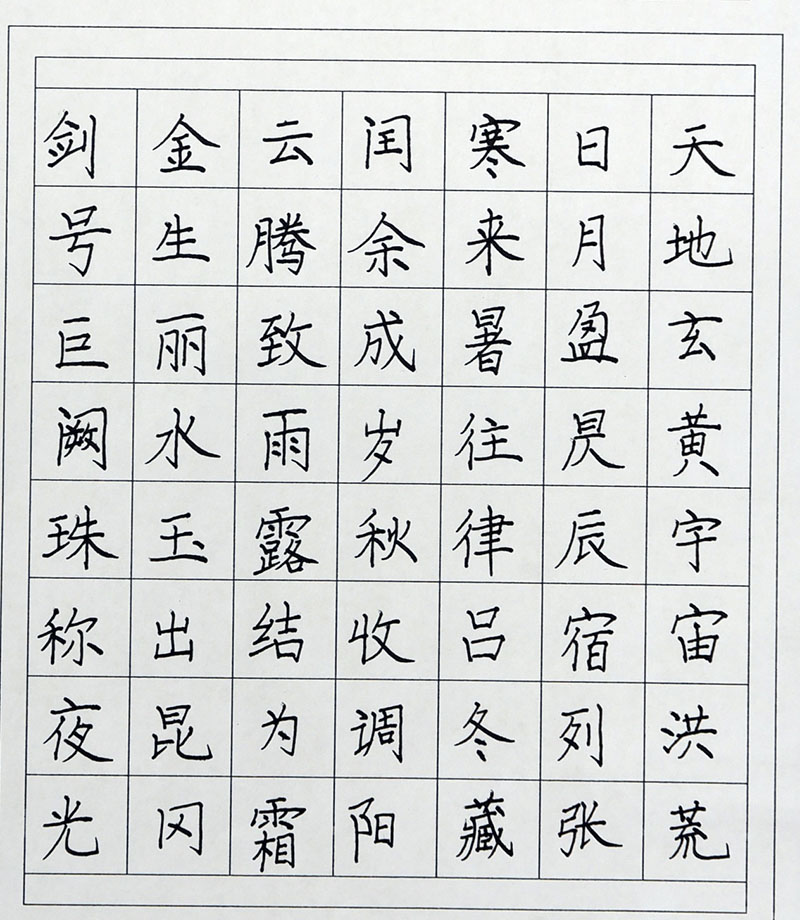 天地玄黄宇宙洪荒
日月盈昃辰宿列张
寒来暑往律吕冬藏
闰余成岁秋收调阳
云腾致雨露结为霜
金生丽水玉出昆冈
剑号巨阙珠称夜光